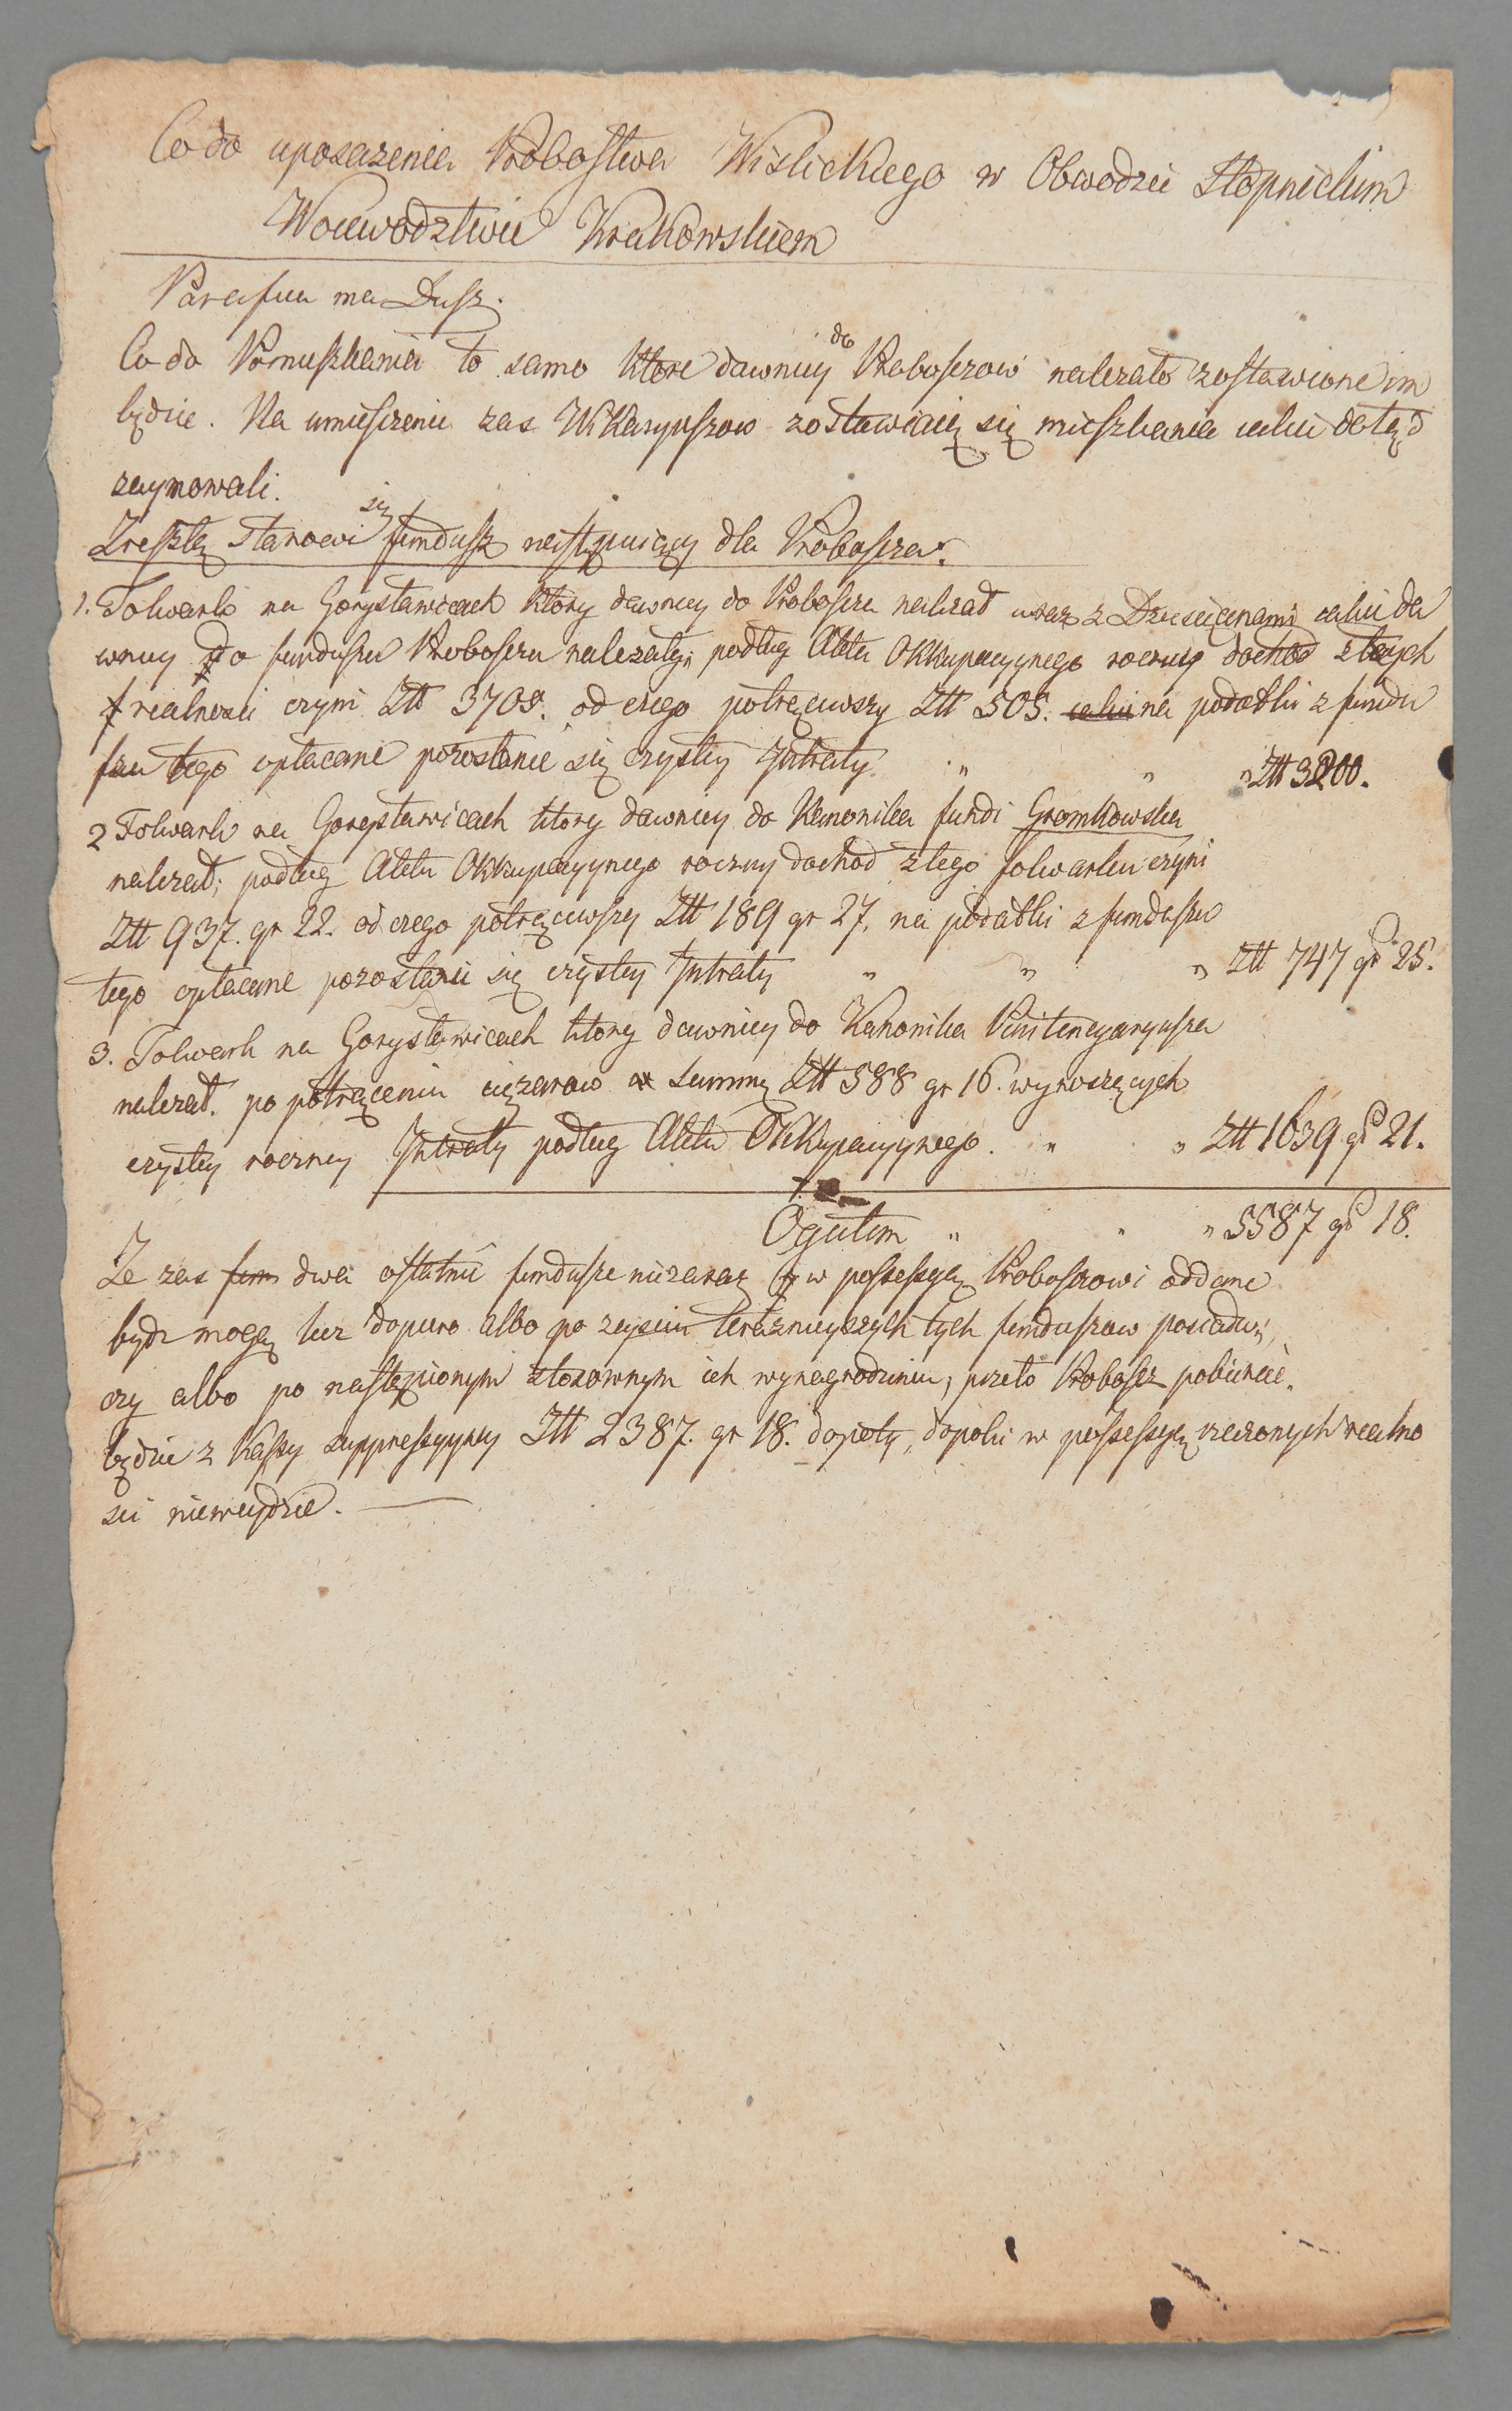 Co do uposazenia Probostwa Wislickiego w Obwodzie Stopnickim
Woiewodztwie Krakowskiem
Parafiia ma Dusz.
Co do Pomieszkania to samo ktore dawniey do Proboszczow nalezało zostawione im
będzie. Na umieszczenie zas Wikaryuszow zostawiaią się mieszkania iakie dotąd
zaymowali.
Zresztą stanowi się fundusz następuiący dla Proboszcza.
1. Folwark na Gorysławicach ktory dawniey do Proboszcza nalezał wraz z Dziesięcinami iakie da
wniey do funduszu Proboszcza nalezały; podług Aktu Okkupacyynego roczny dochod z tych
realnosci czyni Złł 3705. od czego potrąciwszy Złł 505. na podatki z fundu
szu tego opłacane pozostanie się czystey Intraty " " " Złł 3200.
2 Folwark na Gorysławicach ktory dawniey do Kanonika fundi Gromkowska
nalezał; podług Aktu Okkupacyynego roczny dochod z tego folwarku czyni
Złł 937. gr 22. od czego potrąciwszy Złł 189 gr 27. na podatki z funduszu
tego opłacane pozostanie się czystey Intraty " " " Złł 747 gr 25.
3. Folwark na Gorysławicach ktory dawniey do Kanonika Penitencyaryusza
nalezał. po potrąceniu cięzarow summę Złł 588 gr 16. wynoszących
czystey roczney Intraty podług Aktu Okkupacyynego. " " Złł 1639 gr 21.
Ogułem " " " 5587 gr 18.
Ze zas dwa ostatnie fundusze niezaraz w possessyą Proboszczowi oddane
bydz mogą lecz dopiero albo po zeysciu teraznieyszych tych funduszow posiada
czy albo po nastąpionym stosownym ich wynagrodzeniu, przeto Proboszcz pobierać
będzie z Kassy suppressyyney Złł 2387. gr 18. dopoty, dopoki w possessyą rzeczonych realno
sci niewejdzie.